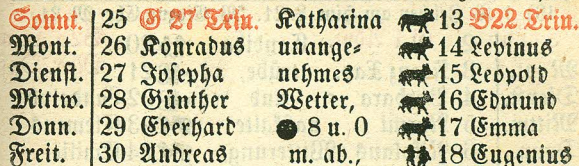 Sonnt. 25 G 27 Trin. Katharina 13 B22 Trin.
Mont. 26 Konradus unange- 14 Levinus
Dienst. 27 Josepha nehmes 15 Leopold
Mittw. 28 Günther Wetter, 16 Edmund
Donn. 29 Eberhard 8 u. 0 17 Emma
Freit. 30 Andreas m. ab., 18 Eugenius